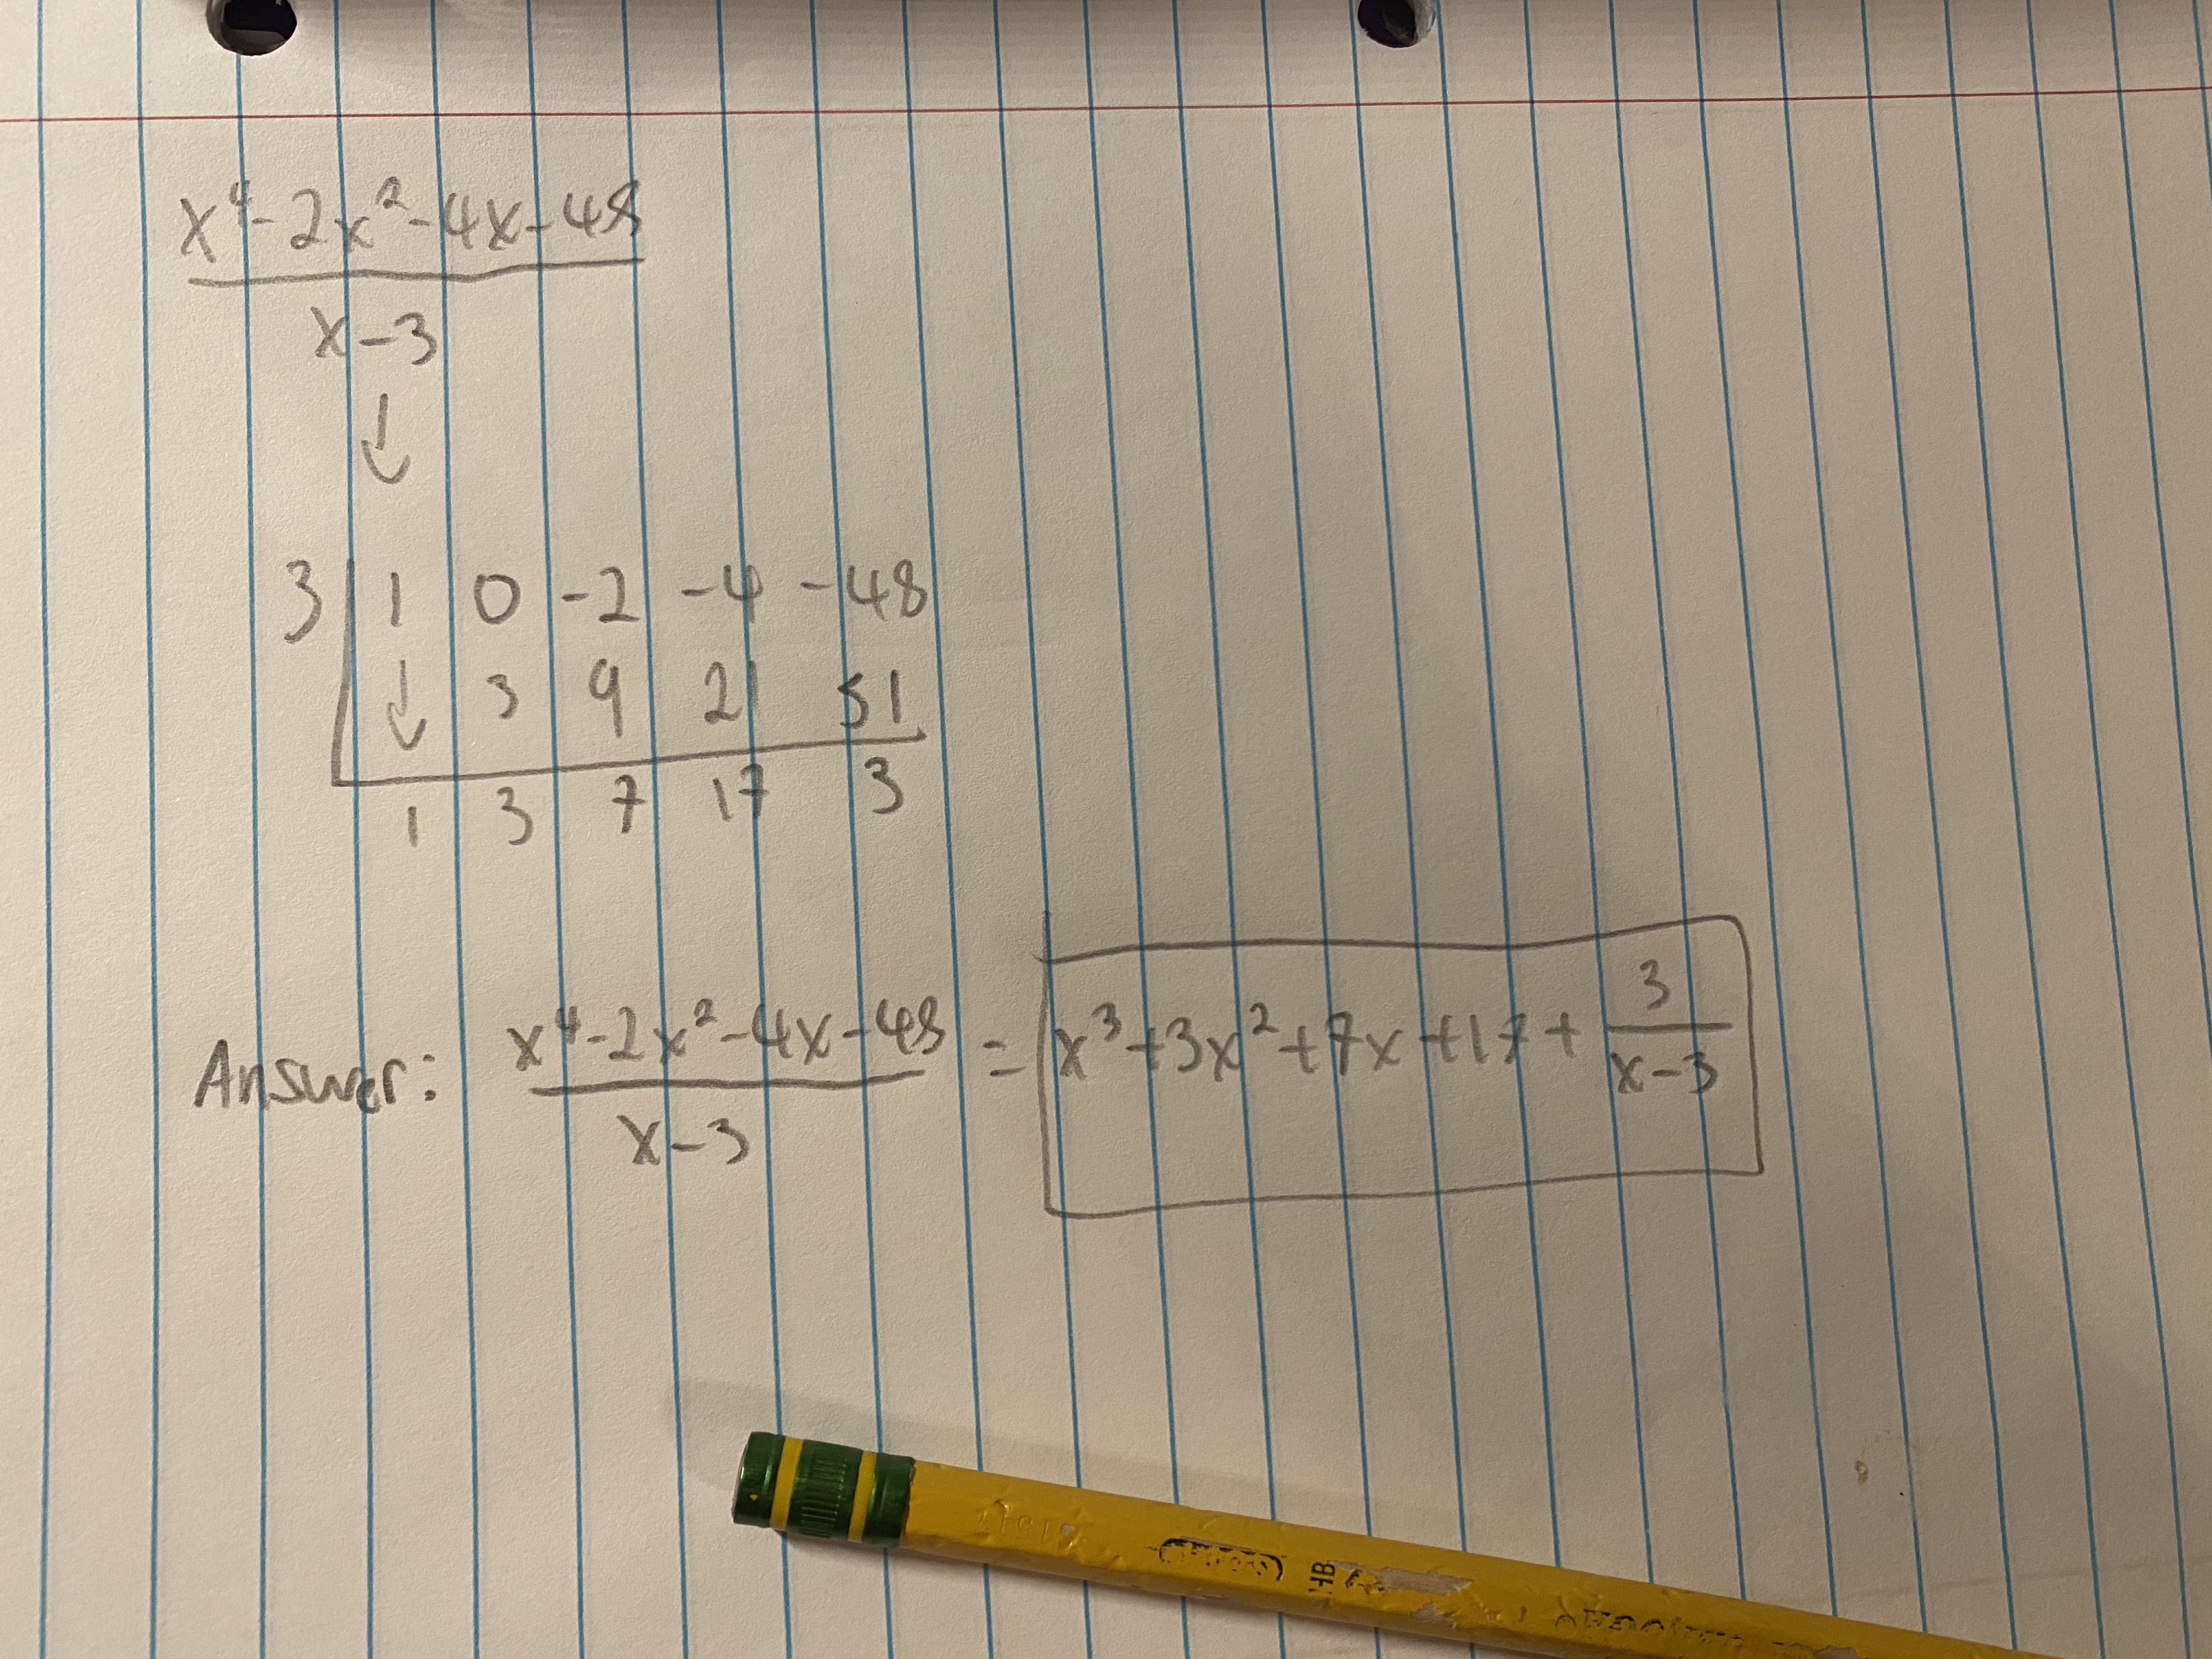 x⁴-2x²-4x-48
x-3
↓
3 1 0 -2 -4 -48
↓ 3 9 21 51
1 3 7 17 3
Answer: x⁴-2x²-4x-48 / x-3 = x³+3x²+7x+17+ 3 / x-3
HB